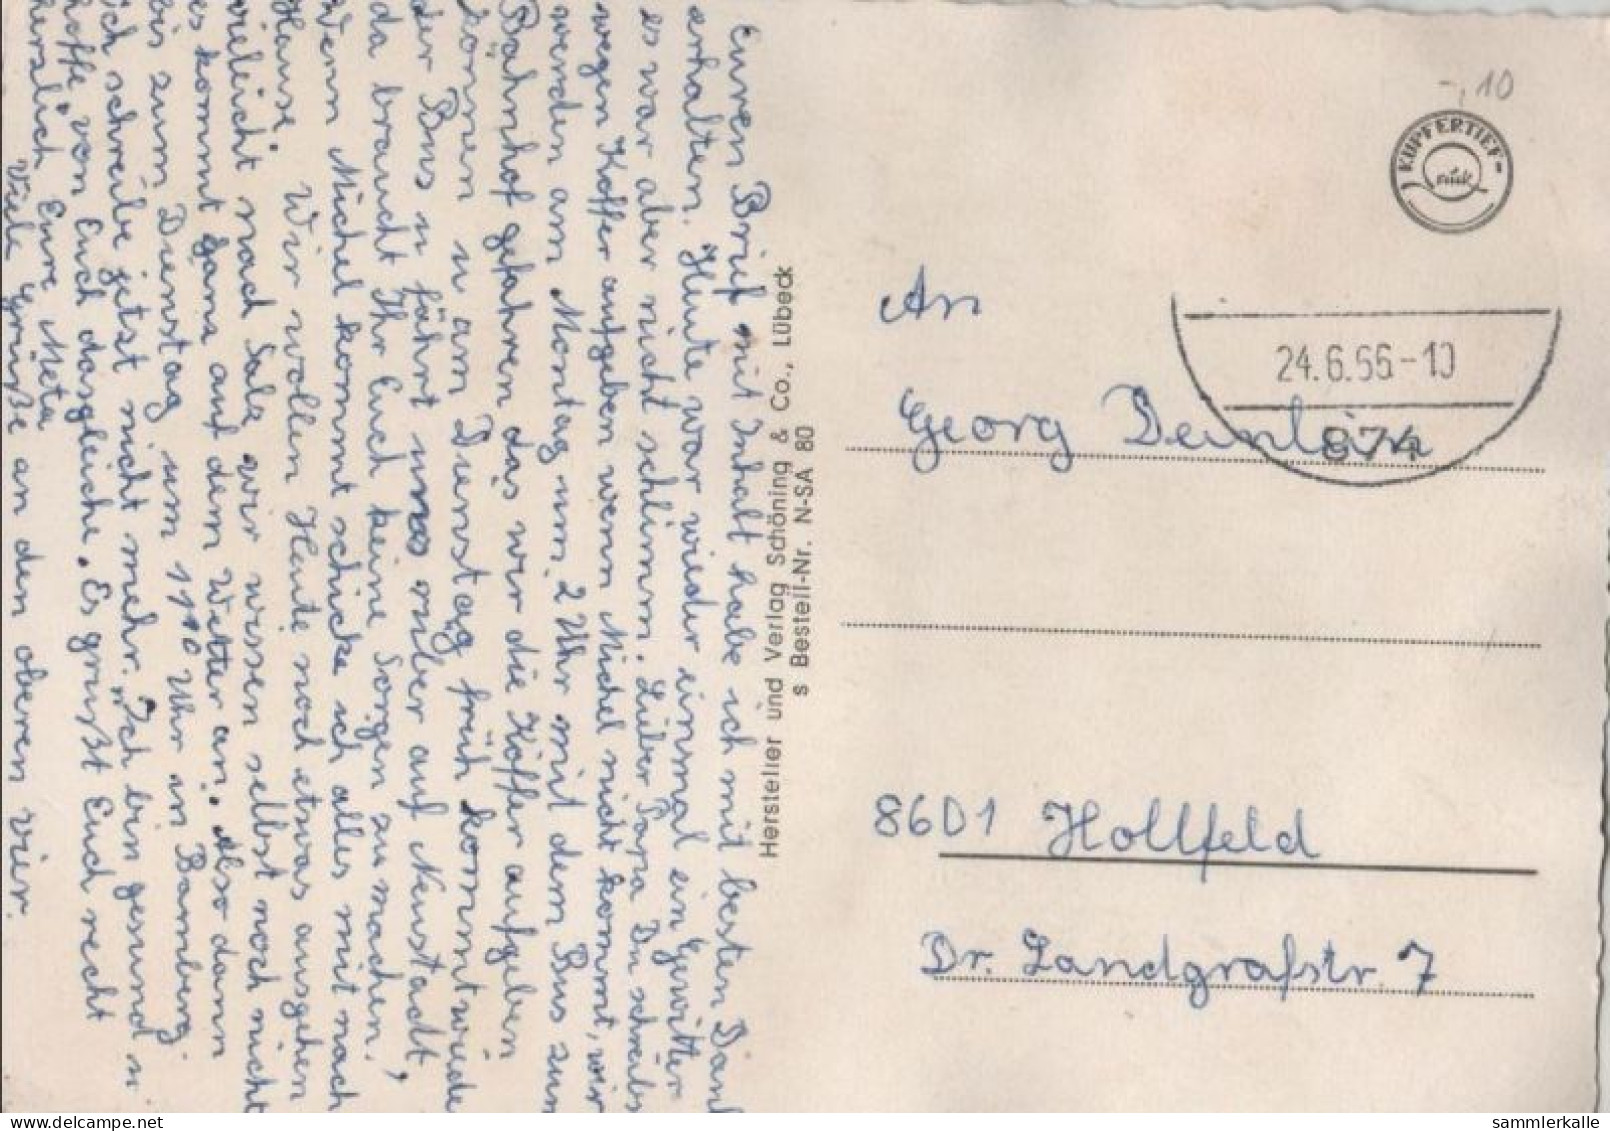 Euren Brief mit Inhalt habe ich mit besten Dank
erhalten. Heute war wieder einmal ein Gewitter
es war aber nicht schlimm. Lieber Papa Du schreibst
wegen Koffer aufgeben wenn Michel nicht kommt, wir
werden am Montag um 2 Uhr mit dem Bus zum
Bahnhof gefahren das wir die Köffer aufgeben
können u am Dienstag früh kommt wieder
der Bus u fährt uns rüber auf Neustadt,
da braucht Ihr Euch keine Sorgen zu machen.
Wenn Michel kommt schicke ich alles mit nach
Hause. Wir wollen Heute noch etwas ausgehen
vieleicht nach Sale wir wissen selbst noch nicht
es kommt ganz auf dem Wetter an. Also dann
bis zum Dienstag um 11 10 Uhr in Bamberg.
ich schreibe jetst nicht mehr. Ich bin gesund u
hoffe von Euch dasgleiche. Es grüßt Euch recht
herzlich Eure Meta
Viele Grüße an den oberen vier.
Hersteller und Verlag Schöning & Co., Lübeck
s Bestell-Nr. N-SA 80
-,10
KUPFERTIEF-
24.6.66-10
874
An
Georg Deinlein
8601 Hollfeld
Dr. Landgrafstr. 7
sammlerkalle